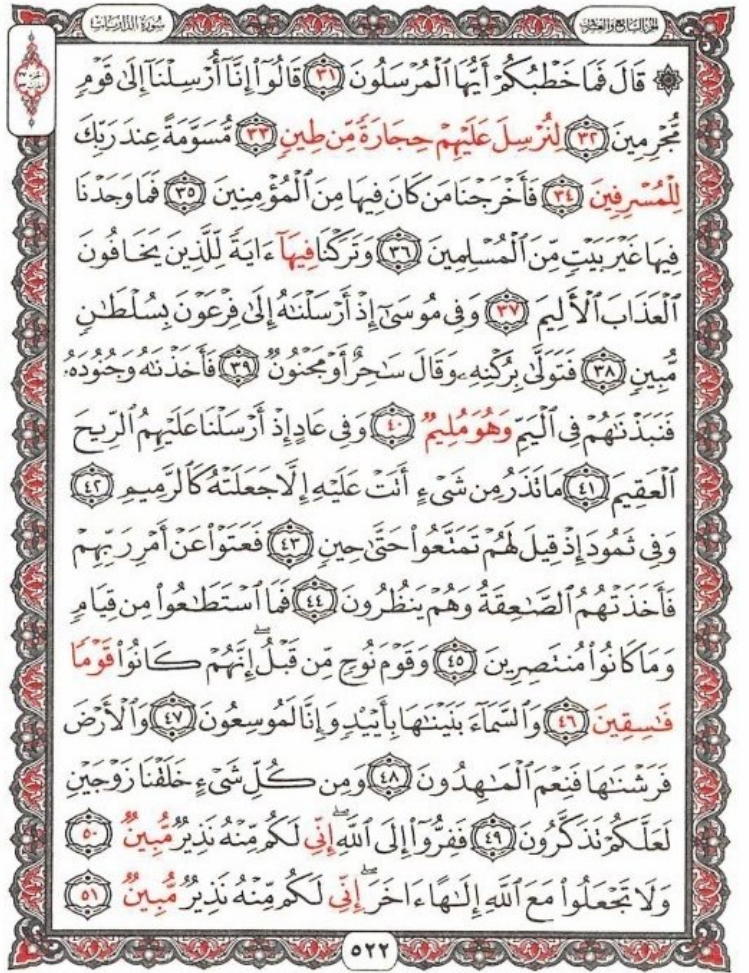 الجزء السابع والعشرون
سورة الذاريات
۞ قَالَ فَمَا خَطْبُكُمْ أَيُّهَا ٱلْمُرْسَلُونَ ٣١ قَالُوٓا۟ إِنَّآ أُرْسِلْنَآ إِلَىٰ قَوْمٍ
مُّجْرِمِينَ ٣٢ لِنُرْسِلَ عَلَيْهِمْ حِجَارَةً مِّن طِينٍ ٣٣ مُّسَوَّمَةً عِندَ رَبِّكَ
لِلْمُسْرِفِينَ ٣٤ فَأَخْرَجْنَا مَن كَانَ فِيهَا مِنَ ٱلْمُؤْمِنِينَ ٣٥ فَمَا وَجَدْنَا
فِيهَا غَيْرَ بَيْتٍ مِّنَ ٱلْمُسْلِمِينَ ٣٦ وَتَرَكْنَا فِيهَآ ءَايَةً لِّلَّذِينَ يَخَافُونَ
ٱلْعَذَابَ ٱلْأَلِيمَ ٣٧ وَفِى مُوسَىٰٓ إِذْ أَرْسَلْنَٰهُ إِلَىٰ فِرْعَوْنَ بِسُلْطَٰنٍ
مُّبِينٍ ٣٨ فَتَوَلَّىٰ بِرُكْنِهِۦ وَقَالَ سَٰحِرٌ أَوْ مَجْنُونٌ ٣٩ فَأَخَذْنَٰهُ وَجُنُودَهُۥ
فَنَبَذْنَٰهُمْ فِى ٱلْيَمِّ وَهُوَ مُلِيمٌ ٤٠ وَفِى عَادٍ إِذْ أَرْسَلْنَا عَلَيْهِمُ ٱلرِّيحَ
ٱلْعَقِيمَ ٤١ مَا تَذَرُ مِن شَىْءٍ أَتَتْ عَلَيْهِ إِلَّا جَعَلَتْهُ كَٱلرَّمِيمِ ٤٢
وَفِى ثَمُودَ إِذْ قِيلَ لَهُمْ تَمَتَّعُوا۟ حَتَّىٰ حِينٍ ٤٣ فَعَتَوْا۟ عَنْ أَمْرِ رَبِّهِمْ
فَأَخَذَتْهُمُ ٱلصَّٰعِقَةُ وَهُمْ يَنظُرُونَ ٤٤ فَمَا ٱسْتَطَٰعُوا۟ مِن قِيَامٍ
وَمَا كَانُوا۟ مُنتَصِرِينَ ٤٥ وَقَوْمَ نُوحٍ مِّن قَبْلُ ۖ إِنَّهُمْ كَانُوا۟ قَوْمًا
فَٰسِقِينَ ٤٦ وَٱلسَّمَآءَ بَنَيْنَٰهَا بِأَيْي۟دٍ وَإِنَّا لَمُوسِعُونَ ٤٧ وَٱلْأَرْضَ
فَرَشْنَٰهَا فَنِعْمَ ٱلْمَٰهِدُونَ ٤٨ وَمِن كُلِّ شَىْءٍ خَلَقْنَا زَوْجَيْنِ
لَعَلَّكُمْ تَذَكَّرُونَ ٤٩ فَفِرُّوٓا۟ إِلَى ٱللَّهِ ۖ إِنِّى لَكُم مِّنْهُ نَذِيرٌ مُّبِينٌ ٥٠
وَلَا تَجْعَلُوا۟ مَعَ ٱللَّهِ إِلَٰهًا ءَاخَرَ ۖ إِنِّى لَكُم مِّنْهُ نَذِيرٌ مُّبِينٌ ٥١
٥٢٢